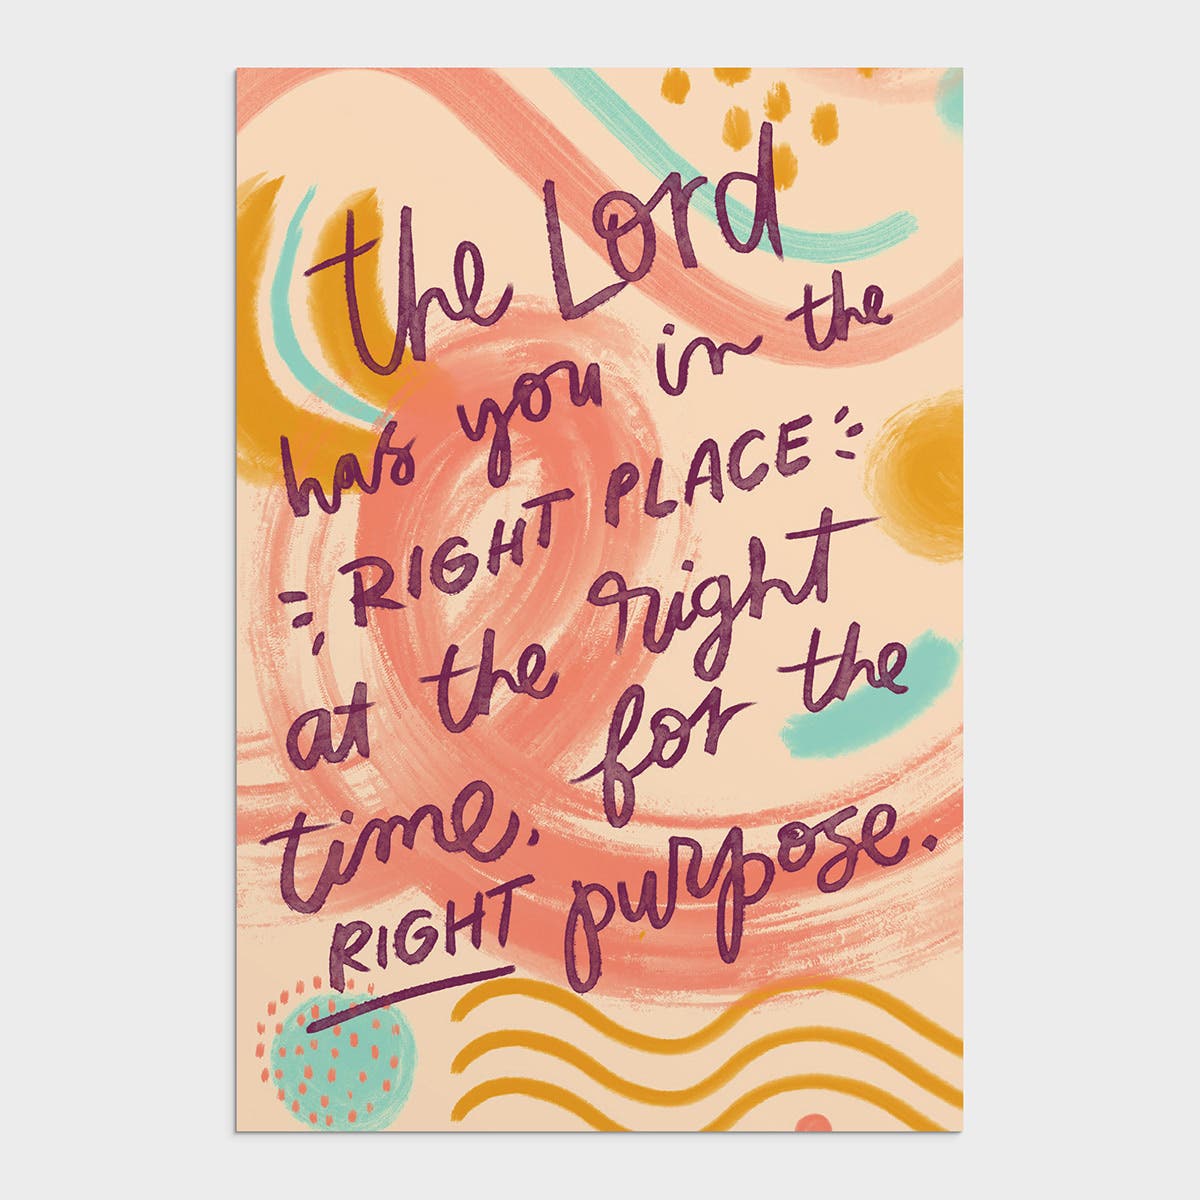 the Lord
has you in the
RIGHT PLACE
at the right
time, for the
RIGHT purpose.